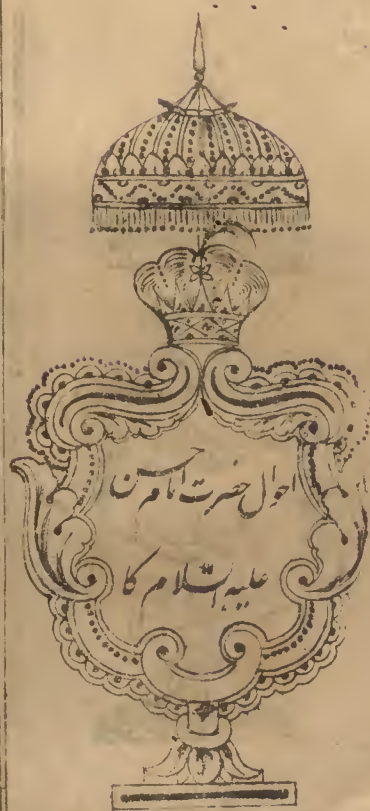 احوال حضرت امام حسن
علیہ السّلام کا